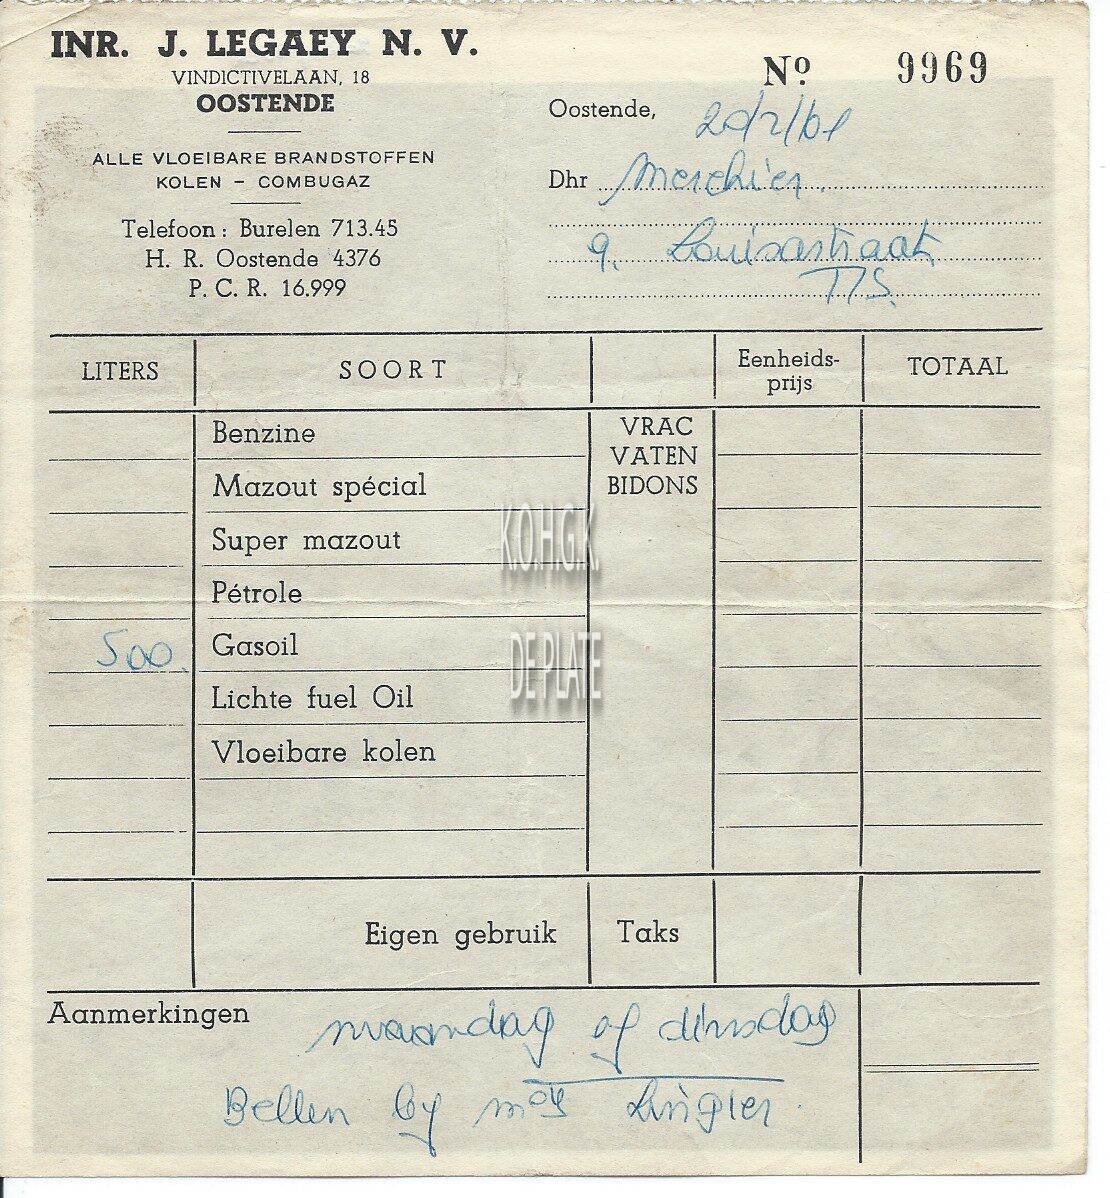 INR. J. LEGAEY N. V.
VINDICTIVELAAN, 18
OOSTENDE
ALLE VLOEIBARE BRANDSTOFFEN
KOLEN – COMBUGAZ
Telefoon : Burelen 713.45
H. R. Oostende 4376
P. C. R. 16.999
Nº 9969
Oostende,
Dhr Merchier.
9. Louisastraat
T/S.
LITERS SOORT Eenheids-
prijs TOTAAL
Benzine VRAC
VATEN
Mazout spécial BIDONS
Super mazout
K.O.H.G.K.
Pétrole
500. Gasoil
DE PLATE
Lichte fuel Oil
Vloeibare kolen
Eigen gebruik Taks
Aanmerkingen
maandag of dinsdag
Bellen by Lingier.